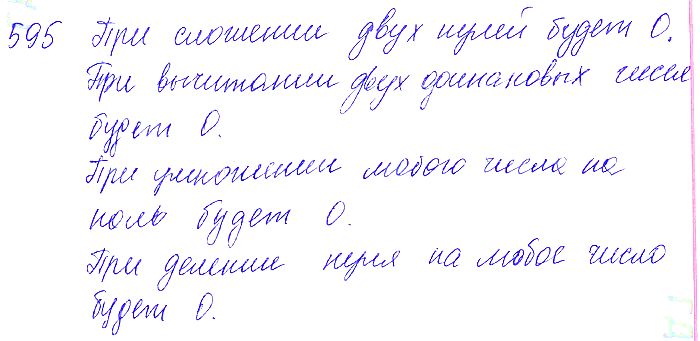 595 При сложении двух нулей будет 0.
При вычитании двух одинановых чисел
будет 0.
При умножении любого числа на
ноль будет 0.
При делении нуля на любое число
будет 0.